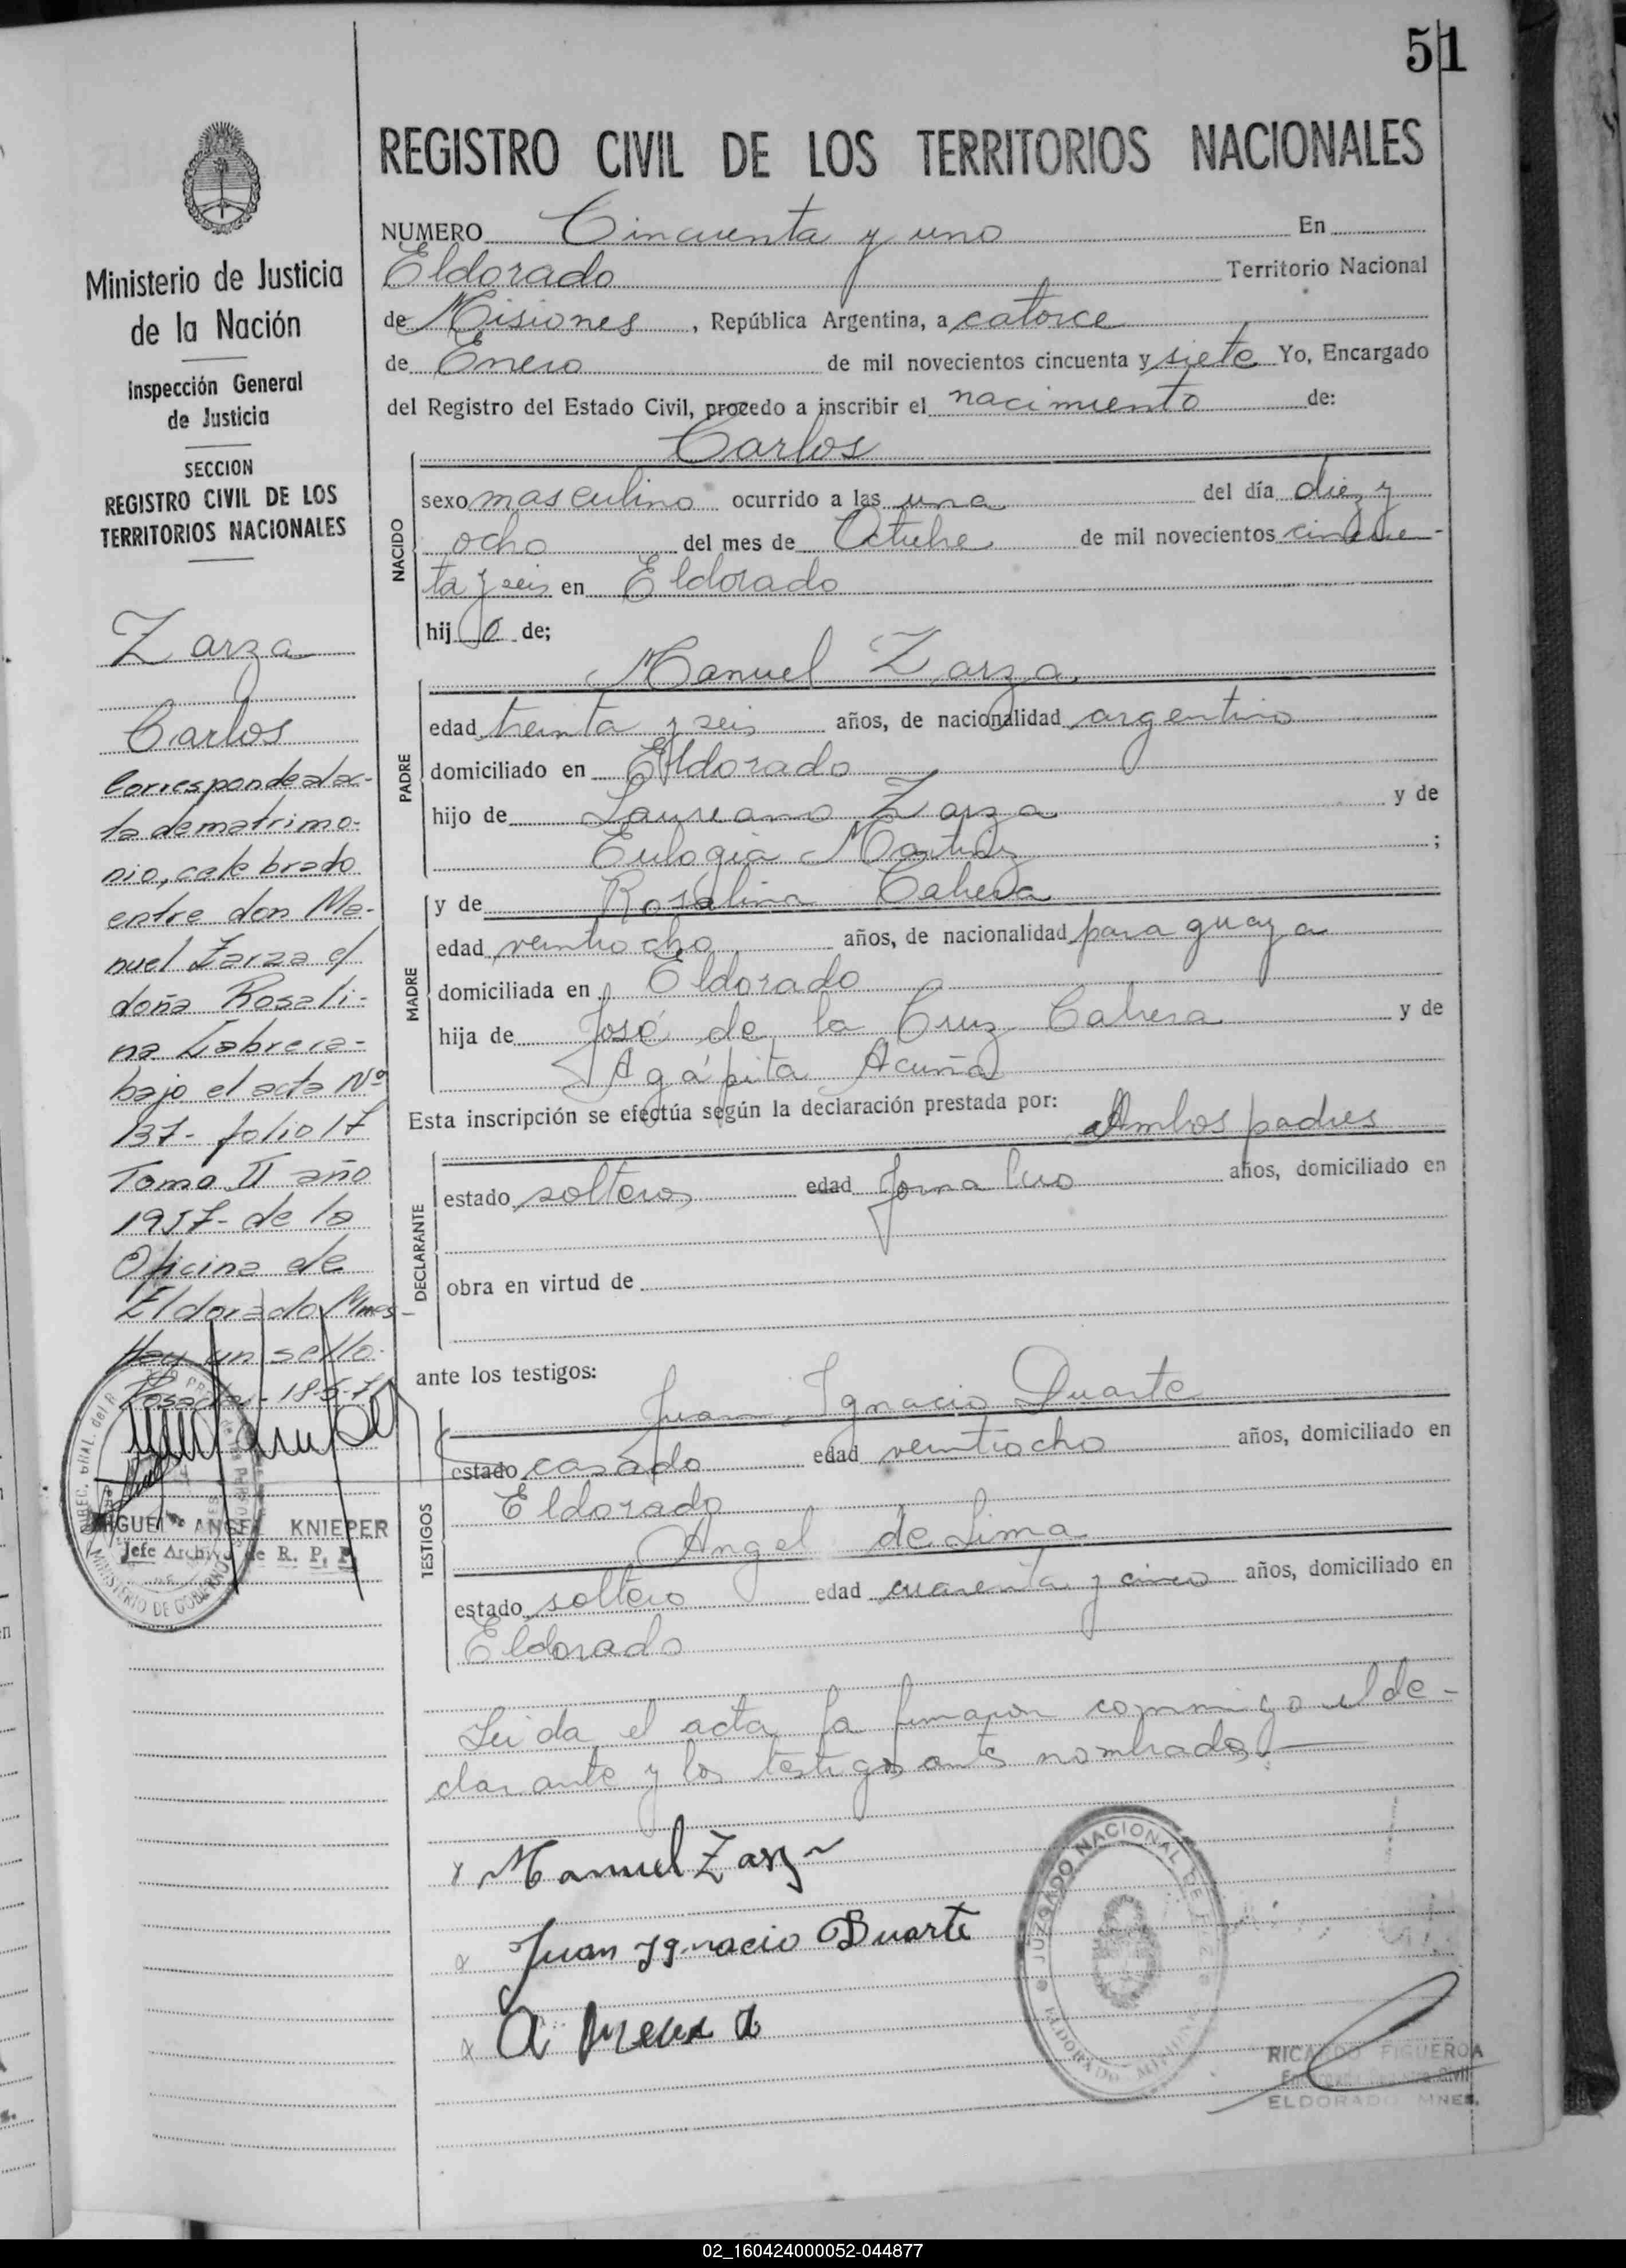 51
REGISTRO CIVIL DE LOS TERRITORIOS NACIONALES
NUMERO Cincuenta y uno En
Eldorado Territorio Nacional
de Misiones, República Argentina, a catorce
de Enero de mil novecientos cincuenta y siete Yo, Encargado
del Registro del Estado Civil, procedo a inscribir el nacimiento de:
Carlos
NACIDO
sexo masculino ocurrido a las una del día diez y
ocho del mes de Octubre de mil novecientos cincuen-
ta y seis en Eldorado
hijo de;
Manuel Zarza
PADRE
edad treinta y seis años, de nacionalidad argentino
domiciliado en Eldorado
hijo de Laureano Zarza y de
Eulogia ;
y de Rosalina Cabrera
MADRE
edad veintiocho años, de nacionalidad paraguaya
domiciliada en Eldorado
hija de José de la Cruz Cabrera y de
Agápita Acuña
Esta inscripción se efectúa según la declaración prestada por:
Ambos padres
DECLARANTE
estado solteros edad Jornalero años, domiciliado en
obra en virtud de
ante los testigos:
Juan Ignacio Duarte
TESTIGOS
estado casado edad veintiocho años, domiciliado en
Eldorado
Angel de Lima
estado soltero edad cuarenta y cinco años, domiciliado en
Eldorado
Leida el acta la firmaron conmigo el de-
clarante y los testigos nombrados.
Manuel Zarza
Juan Ignacio Duarte
JUZGADO NACIONAL DE PAZ
ELDORADO MISIONES
RICARDO FIGUEROA
Encargado Registro Civil
ELDORADO MNES.
Ministerio de Justicia
de la Nación
Inspección General
de Justicia
SECCION
REGISTRO CIVIL DE LOS
TERRITORIOS NACIONALES
Zarza
Carlos
Corresponde al ac-
ta de matrimo-
nio, celebrado
entre don Ma-
nuel Zarza c/
doña Rosali-
na Cabrera-
bajo el acta Nº
137- folio 17
Tomo II año
1957- de la
Oficina de
Eldorado Mnes-
Hay un sello.
Posadas- 18-5-7
MIGUEL ANGEL KNIEPER
Jefe Archivo de R. P. P.
MINISTERIO DE GOBIERNO
02_160424000052-044877